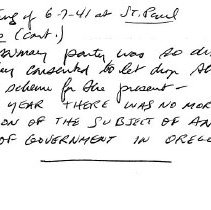 ing of 6-7-41 at St. Paul
(Cont.)
party was so dis
consented to let drop the
scheme for the present -
YEAR THERE WAS NO MOR
ION OF THE SUBJECT OF AN
OF GOVERNMENT IN OREG